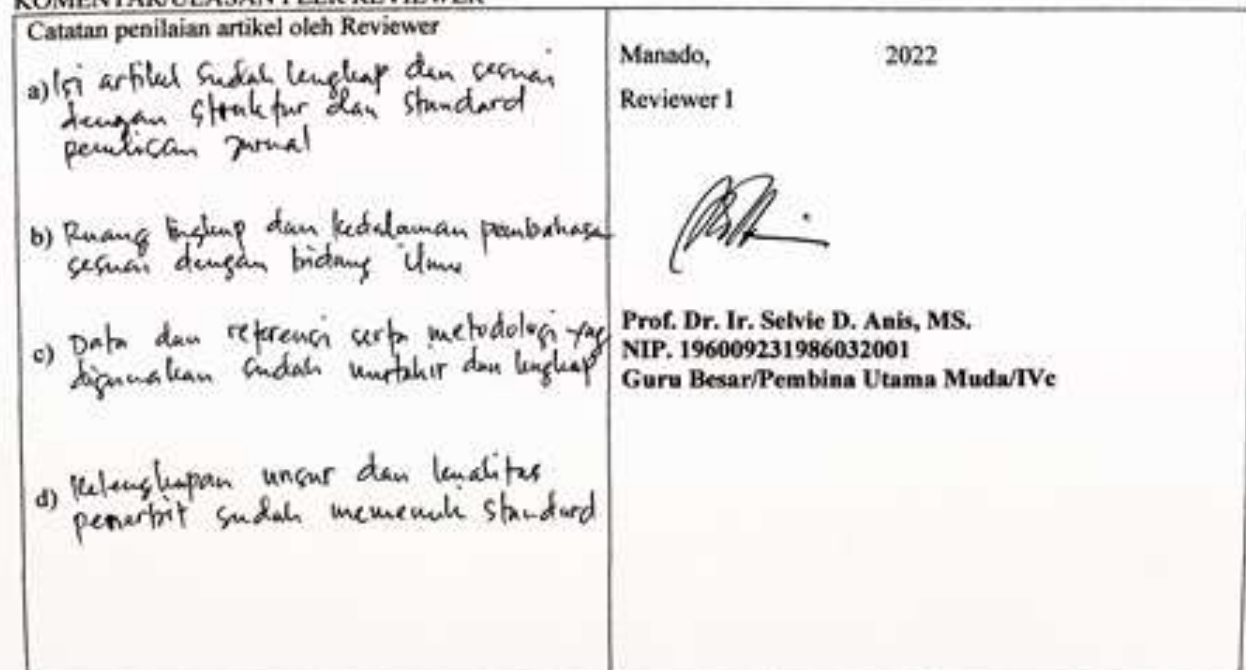 KOMENTAR/ULASAN PEER REVIEWER
Catatan penilaian artikel oleh Reviewer
a) Isi artikel sudah lengkap dan sesuai
dengan struktur dan standard
penulisan jurnal
b) Ruang lingkup dan kedalaman pembahasa
sesuai dengan bidang ilmu
c) Data dan referensi serta metodologi yag
digunakan sudah mutahir dan lengkap
d) Kelengkapan unsur dan kualitas
penerbit sudah memenuhi standard
Manado, 2022
Reviewer I
Prof. Dr. Ir. Selvie D. Anis, MS.
NIP. 196009231986032001
Guru Besar/Pembina Utama Muda/IVc